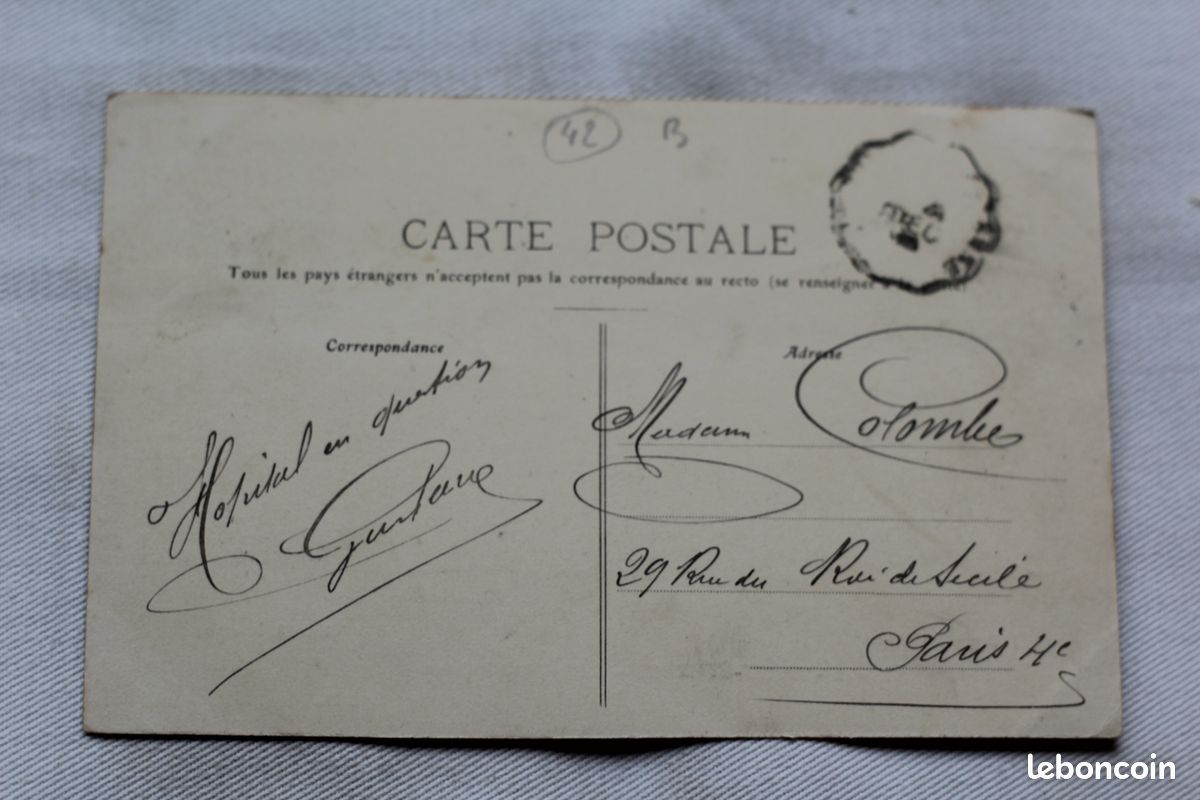 42 B
CARTE POSTALE
Tous les pays étrangers n'acceptent pas la correspondance au recto (se renseigner
Correspondance
Hopital en question
Gustave
Adresse
Madame Colombe
29 Rue du Roi de Sicile
Paris 4e
leboncoin